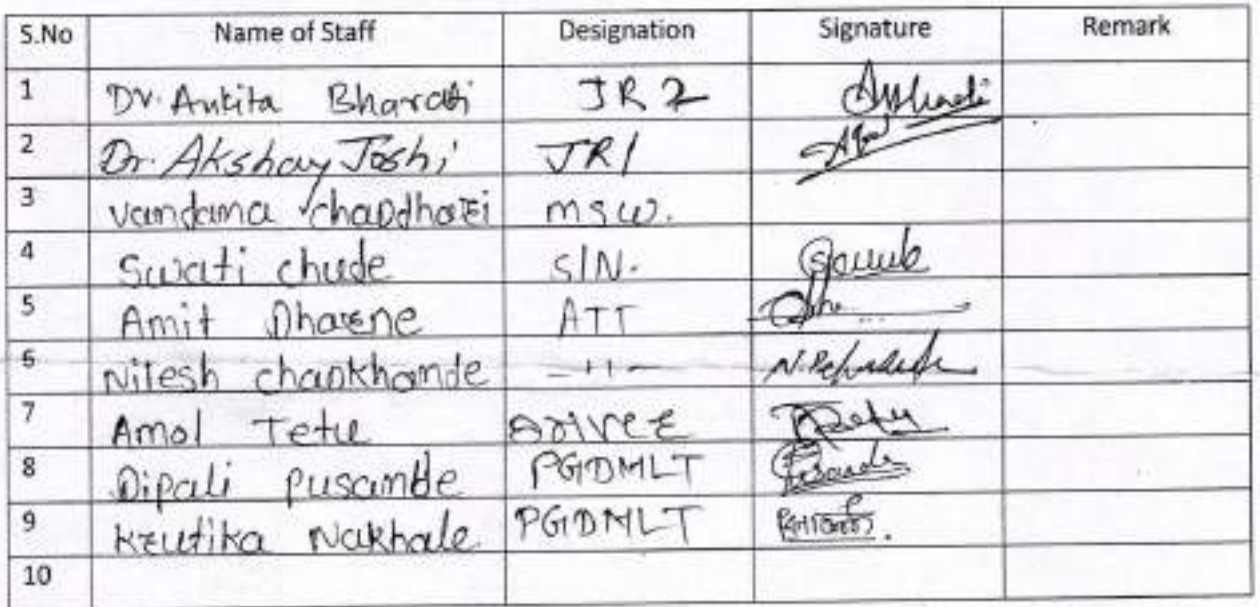 S.No Name of Staff Designation Signature Remark
1 Dr. Ankita Bharati JR 2
2 Dr. Akshay Joshi JR1
3 vandana chaodhari msw.
4 Swati chude S/N.
5 Amit Dharne ATT
6 Nilesh chankhande -11-
7 Amol Tetu
8 Dipali pusambe PGDMLT
9 Krutika Nakhale. PGDMLT
10